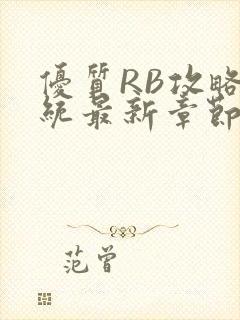 優質RB攻略
統最新章節
范曾